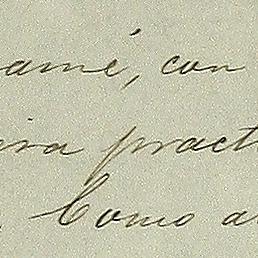 amé, con
ra pract
Como a